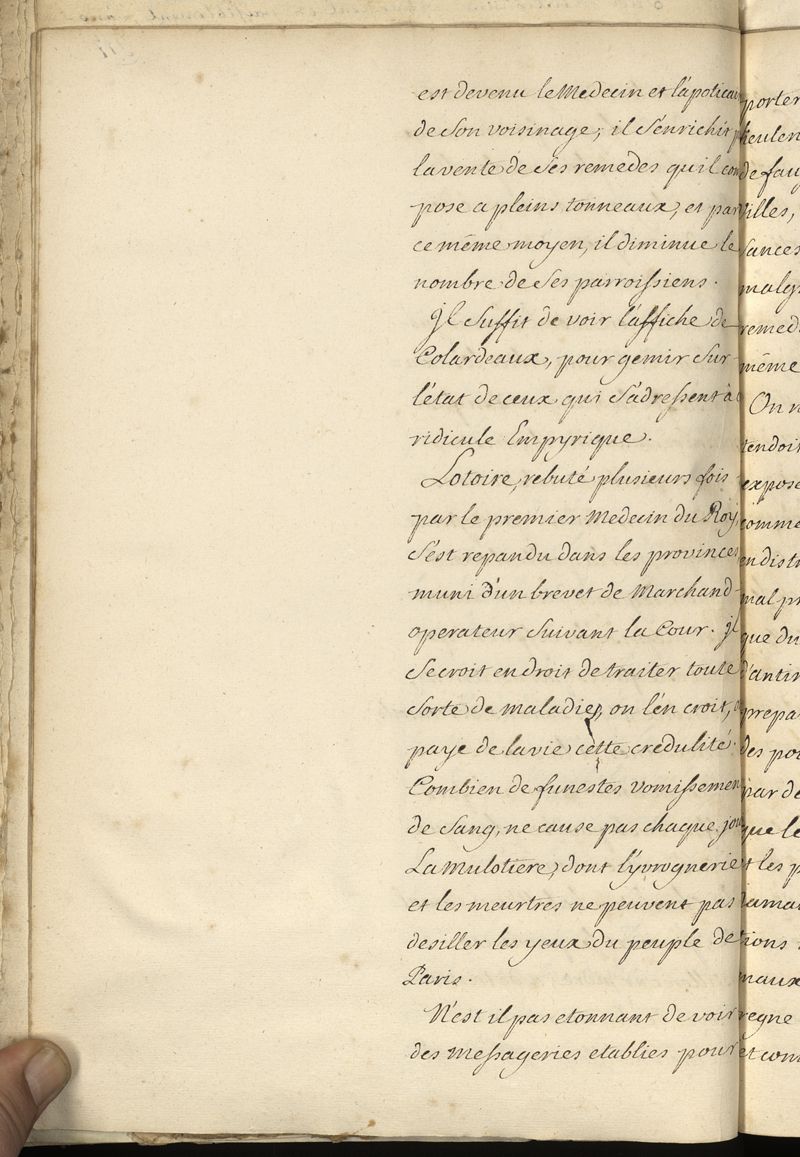 est devenu le Medecin et l'apoticai
de son voisinage; il s'enrichit p
la vente de ses remedes qu'il com
pose a pleins tonneaux, et par
ce même moyen, il diminue le
nombre de ses parroissiens.
jl suffit de voir l'affiche de
Colardeaux, pour gemir sur
l'état de ceux qui s'adressent à
ridicule Empyrique.
Lotoire, rebuté plusieurs fois
par le premier Medecin du Roy,
s'est repandu dans les provinces
muni d'un brevet de Marchand
operateur suivant la Cour. jl
se croit en droit de traiter toute
sorte de maladies, on l'en croit,
paye de la vie cette credulité.
Combien de funestes vomissemen
de sang, ne cause pas chaque jou
La Mulotiere, dont l'yvrognerie
et les meurtres ne peuvent pas
desiller les yeux du peuple de
Paris.
N'est il pas etonnant de voir
des Messageries etablies pour
porter
de fau
villes,
sances
remed
même
On n
tendoit
expose
comme
en distr
mal pr
que du
d'antim
prepa
des po
par de
que le
et les p
jamai
tions
maux
regne
et com